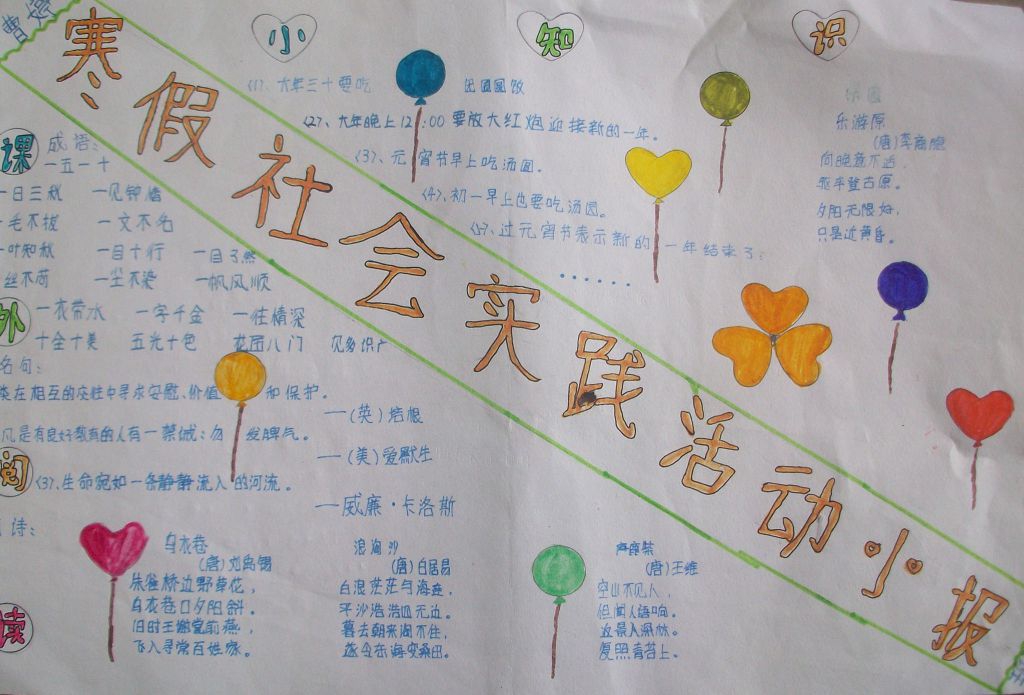 曹婷
寒假社会实践活动小报
小知识
(1)、大年三十要吃 团圆饭
(2)、大年晚上12:00要放大红炮迎接新的一年。
(3)、元宵节早上吃汤圆。
(4)、初一早上也要吃汤圆。
(5)、过元宵节表示新的一年结束了:
......
乐游原
(唐)李商隐
向晚意不适,
驱车登古原。
夕阳无限好,
只是近黄昏。
课外阅读
成语:
一五一十
一日三秋 一见钟情
一毛不拔 一文不名
一叶知秋 一目十行 一目了然
丝不苟 一尘不染 一帆风顺
一衣带水 一字千金 一往情深
十全十美 五光十色 花园八门 见多识广
名句:
类在相互的交往中寻求安慰、价值和保护。
—(英)培根
凡是有良好教养的人有一禁诫:勿发脾气。
—(美)爱默生
(3)、生命宛如一条静静流入的河流。
—威廉·卡洛斯
诗:
乌衣巷
(唐)刘禹锡
朱雀桥边野草花,
乌衣巷口夕阳斜。
旧时王谢堂前燕,
飞入寻常百姓家。
浪淘沙
(唐)白居易
白浪茫茫与海连,
平沙浩浩四无边。
暮去朝来淘不住,
遂令东海变桑田。
(唐)王维
空山不见人,
但闻人语响。
返景入深林。
复照青苔上。